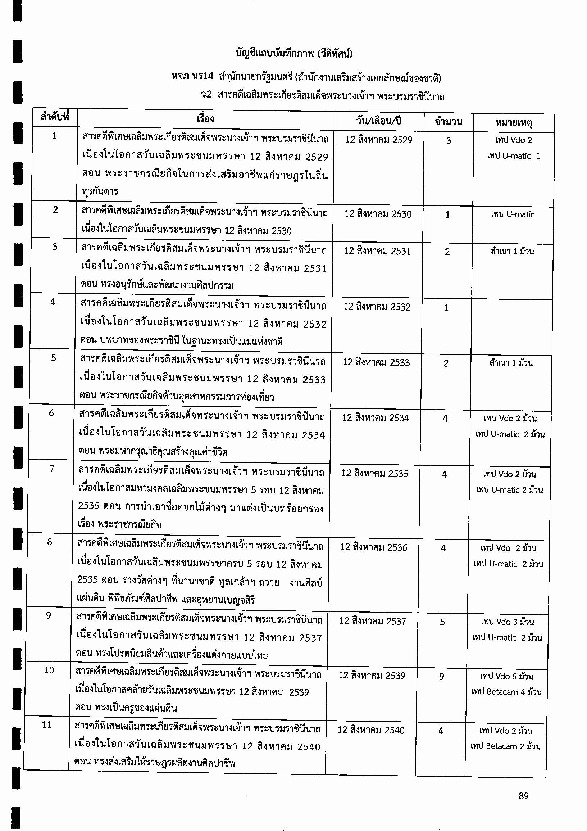 บัญชีแถบบันทึกภาพ (วีดิทัศน์)
หจภ นร14 สำนักนายกรัฐมนตรี (สำนักงานเสริมสร้างเอกลักษณ์ของชาติ)
ว2 สารคดีเฉลิมพระเกียรติสมเด็จพระนางเจ้าฯ พระบรมราชินีนาถ
ลำดับที่ เรื่อง วัน/เดือน/ปี จำนวน หมายเหตุ
1 สารคดีพิเศษเฉลิมพระเกียรติสมเด็จพระนางเจ้าฯ พระบรมราชินีนาถ 12 สิงหาคม 2529 3 เทป Vdo 2
เนื่องในโอกาสวันเฉลิมพระชนมพรรษา 12 สิงหาคม 2529 เทป U-matic 1
ตอน พระราชกรณียกิจในการส่งเสริมอาชีพแก่ราษฎรในถิ่น
ทุรกันดาร
2 สารคดีพิเศษเฉลิมพระเกียรติสมเด็จพระนางเจ้าฯ พระบรมราชินีนาถ 12 สิงหาคม 2530 1 เทป U-matic
เนื่องในโอกาสวันเฉลิมพระชนมพรรษา 12 สิงหาคม 2530
3 สารคดีเฉลิมพระเกียรติสมเด็จพระนางเจ้าฯ พระบรมราชินีนาถ 12 สิงหาคม 2531 2 สำเนา 1 ม้วน
เนื่องในโอกาสวันเฉลิมพระชนมพรรษา 12 สิงหาคม 2531
ตอน ทรงอนุรักษ์และพัฒนางานศิลปกรรม
4 สารคดีเฉลิมพระเกียรติสมเด็จพระนางเจ้าฯ พระบรมราชินีนาถ 12 สิงหาคม 2532 1
เนื่องในโอกาสวันเฉลิมพระชนมพรรษา 12 สิงหาคม 2532
ตอน บทบาทของพระราชินี ในฐานะทรงเป็นแม่แห่งชาติ
5 สารคดีเฉลิมพระเกียรติสมเด็จพระนางเจ้าฯ พระบรมราชินีนาถ 12 สิงหาคม 2533 2 สำเนา 1 ม้วน
เนื่องในโอกาสวันเฉลิมพระชนมพรรษา 12 สิงหาคม 2533
ตอน พระราชกรณียกิจด้านอุตสาหกรรมการท่องเที่ยว
6 สารคดีเฉลิมพระเกียรติสมเด็จพระนางเจ้าฯ พระบรมราชินีนาถ 12 สิงหาคม 2534 4 เทป Vdo 2 ม้วน
เนื่องในโอกาสวันเฉลิมพระชนมพรรษา 12 สิงหาคม 2534 เทป U-matic 2 ม้วน
ตอน พระมหากรุณาธิคุณสร้างคุณค่าชีวิต
7 สารคดีเฉลิมพระเกียรติสมเด็จพระนางเจ้าฯ พระบรมราชินีนาถ 12 สิงหาคม 2535 4 เทป Vdo 2 ม้วน
เนื่องในโอกาสมหามงคลเฉลิมพระชนมพรรษา 5 รอบ 12 สิงหาคม เทป U-matic 2 ม้วน
2535 ตอน การนำเอาชื่อดอกไม้ต่างๆ มาแต่งเป็นบทร้อยกรอง
เรื่อง พระราชกรณียกิจ
8 สารคดีพิเศษเฉลิมพระเกียรติสมเด็จพระนางเจ้าฯ พระบรมราชินีนาถ 12 สิงหาคม 2536 4 เทป Vdo 2 ม้วน
เนื่องในโอกาสวันเฉลิมพระชนมพรรษาครบ 5 รอบ 12 สิงหาคม เทป U-matic 2 ม้วน
2535 ตอน รางวัลต่างๆ ที่นานาชาติ ทูลเกล้าฯ ถวาย งานศิลป์
แผ่นดิน พิพิธภัณฑ์ศิลปาชีพ และอุทยานเบญจสิริ
9 สารคดีพิเศษเฉลิมพระเกียรติสมเด็จพระนางเจ้าฯ พระบรมราชินีนาถ 12 สิงหาคม 2537 5 เทป Vdo 3 ม้วน
เนื่องในโอกาสวันเฉลิมพระชนมพรรษา 12 สิงหาคม 2537 เทป U-matic 2 ม้วน
ตอน ทรงโปรดนิยมสินค้าและเครื่องแต่งกายแบบไทย
10 สารคดีพิเศษเฉลิมพระเกียรติสมเด็จพระนางเจ้าฯ พระบรมราชินีนาถ 12 สิงหาคม 2539 9 เทป Vdo 5 ม้วน
เนื่องในโอกาสคล้ายวันเฉลิมพระชนมพรรษา 12 สิงหาคม 2539 เทป Betacam 4 ม้วน
ตอน ทรงเป็นครูของแผ่นดิน
11 สารคดีพิเศษเฉลิมพระเกียรติสมเด็จพระนางเจ้าฯ พระบรมราชินีนาถ 12 สิงหาคม 2540 4 เทป Vdo 2 ม้วน
เนื่องในโอกาสวันเฉลิมพระชนมพรรษา 12 สิงหาคม 2540 เทป Betacam 2 ม้วน
ตอน ทรงส่งเสริมให้ราษฎรผลิตงานศิลปาชีพ
89